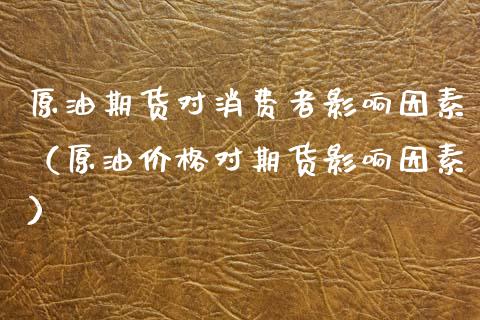 原油期货对消费者影响因素
（原油价格对期货影响因素
）